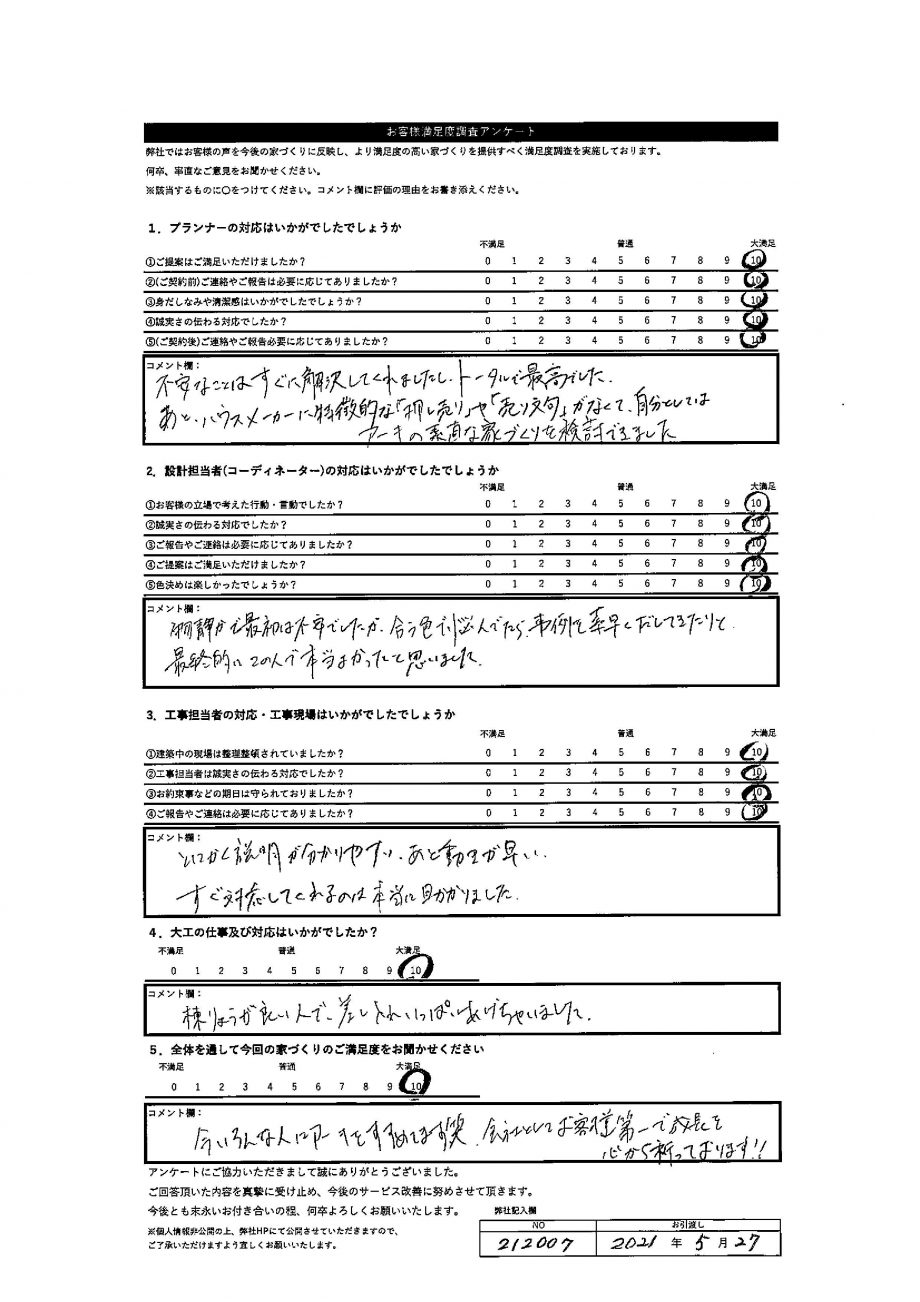 お客様満足度調査アンケート
弊社ではお客様の声を今後の家づくりに反映し、より満足度の高い家づくりを提供すべく満足度調査を実施しております。
何卒、率直なご意見をお聞かせください。
※該当するものに〇をつけてください。コメント欄に評価の理由をお書き添えください。
1．プランナーの対応はいかがでしたでしょうか
不満足 普通 大満足
①ご提案はご満足いただけましたか？ 0 1 2 3 4 5 6 7 8 9 10
②(ご契約前)ご連絡やご報告は必要に応じてありましたか？ 0 1 2 3 4 5 6 7 8 9 10
③身だしなみや清潔感はいかがでしたでしょうか？ 0 1 2 3 4 5 6 7 8 9 10
④誠実さの伝わる対応でしたか？ 0 1 2 3 4 5 6 7 8 9 10
⑤(ご契約後)ご連絡やご報告必要に応じてありましたか？ 0 1 2 3 4 5 6 7 8 9 10
コメント欄：
不安なことはすぐに解決してくれましたし、トータルで最高でした。
あと、ハウスメーカーに特徴的な「押し売り」や「売り文句」がなくて、自分としては
アーキの素直な家づくりを検討できました
2．設計担当者(コーディネーター)の対応はいかがでしたでしょうか
不満足 普通 大満足
①お客様の立場で考えた行動・言動でしたか？ 0 1 2 3 4 5 6 7 8 9 10
②誠実さの伝わる対応でしたか？ 0 1 2 3 4 5 6 7 8 9 10
③ご報告やご連絡は必要に応じてありましたか？ 0 1 2 3 4 5 6 7 8 9 10
④ご提案はご満足いただけましたか？ 0 1 2 3 4 5 6 7 8 9 10
⑤色決めは楽しかったでしょうか？ 0 1 2 3 4 5 6 7 8 9 10
コメント欄：
静かで最初は不安でしたが、合う色で悩んでたら、事例を素早くだしてきたりと
最終的にこの人で本当よかったと思いました。
3．工事担当者の対応・工事現場はいかがでしたでしょうか
不満足 普通 大満足
①建築中の現場は整理整頓されていましたか？ 0 1 2 3 4 5 6 7 8 9 10
②工事担当者は誠実さの伝わる対応でしたか？ 0 1 2 3 4 5 6 7 8 9 10
③お約束事などの期日は守られておりましたか？ 0 1 2 3 4 5 6 7 8 9 10
④ご報告やご連絡は必要に応じてありましたか？ 0 1 2 3 4 5 6 7 8 9 10
コメント欄：
とにかく説明が分かりやすい、あと動きが早い、
すぐ対応してくれるのは本当に助かりました。
4．大工の仕事及び対応はいかがでしたか？
不満足 普通 大満足
0 1 2 3 4 5 6 7 8 9 10
コメント欄：
棟りょうが良い人で、差し入れいっぱいあげちゃいました。
5．全体を通して今回の家づくりのご満足度をお聞かせください
不満足 普通 大満足
0 1 2 3 4 5 6 7 8 9 10
コメント欄：
今いろんな人にアーキをすすめてます笑 会社としてお客様第一で成長を
心から祈っております!!
アンケートにご協力いただきまして誠にありがとうございました。
ご回答頂いた内容を真摯に受け止め、今後のサービス改善に努めさせて頂きます。
今後とも末永いお付き合いの程、何卒よろしくお願いいたします。
弊社記入欄
※個人情報非公開の上、弊社HPにて公開させていただきますので、
ご了承いただけますよう宜しくお願いいたします。
NO お引渡し
212007 2021 年 5 月 27